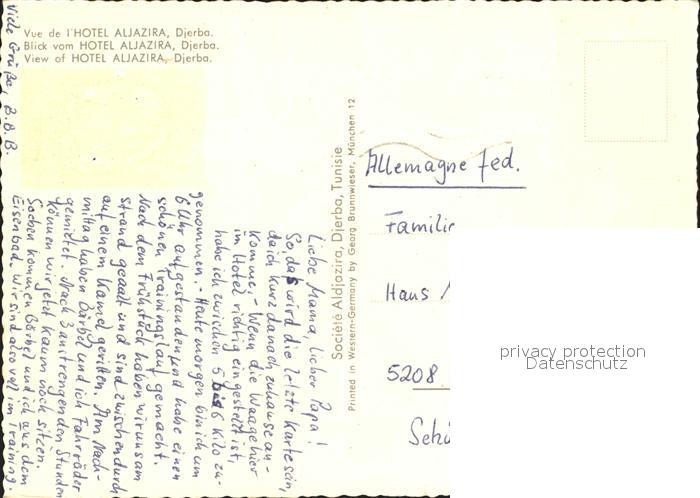 Vue de l'HOTEL ALJAZIRA, Djerba.
Blick vom HOTEL ALJAZIRA, Djerba.
View of HOTEL ALJAZIRA, Djerba.
Liebe Mama, lieber Papa!
So, das wird die letzte Karte sein,
da ich kurz danach zuhause an-
komme. - Wenn die Waage hier
im Hotel richtig eingestellt ist,
habe ich zwischen 5 bis 6 Kilo zu-
genommen. - Heute morgen bin ich um
6 Uhr aufgestanden und habe einen
schönen Trainingslauf gemacht.
Nach dem Frühstück haben wir uns am
Strand geaalt und sind zwischendurch
auf einem Kamel geritten. Am Nach-
mittag haben Bärbel und ich Fahrräder
gemietet. Nach 3 anstrengenden Stunden
können wir jetzt kaum noch sitzen.
Soeben kommen Bärbel und ich aus dem
Eisenbad. Wir sind also voll im Training.
Viele Grüße,
Société Aldjazira, Djerba, Tunisie
Printed in Western-Germany by Georg Brunnwieser, München 12
Allemagne fed.
Familie
Haus
5208
privacy protection
Datenschutz